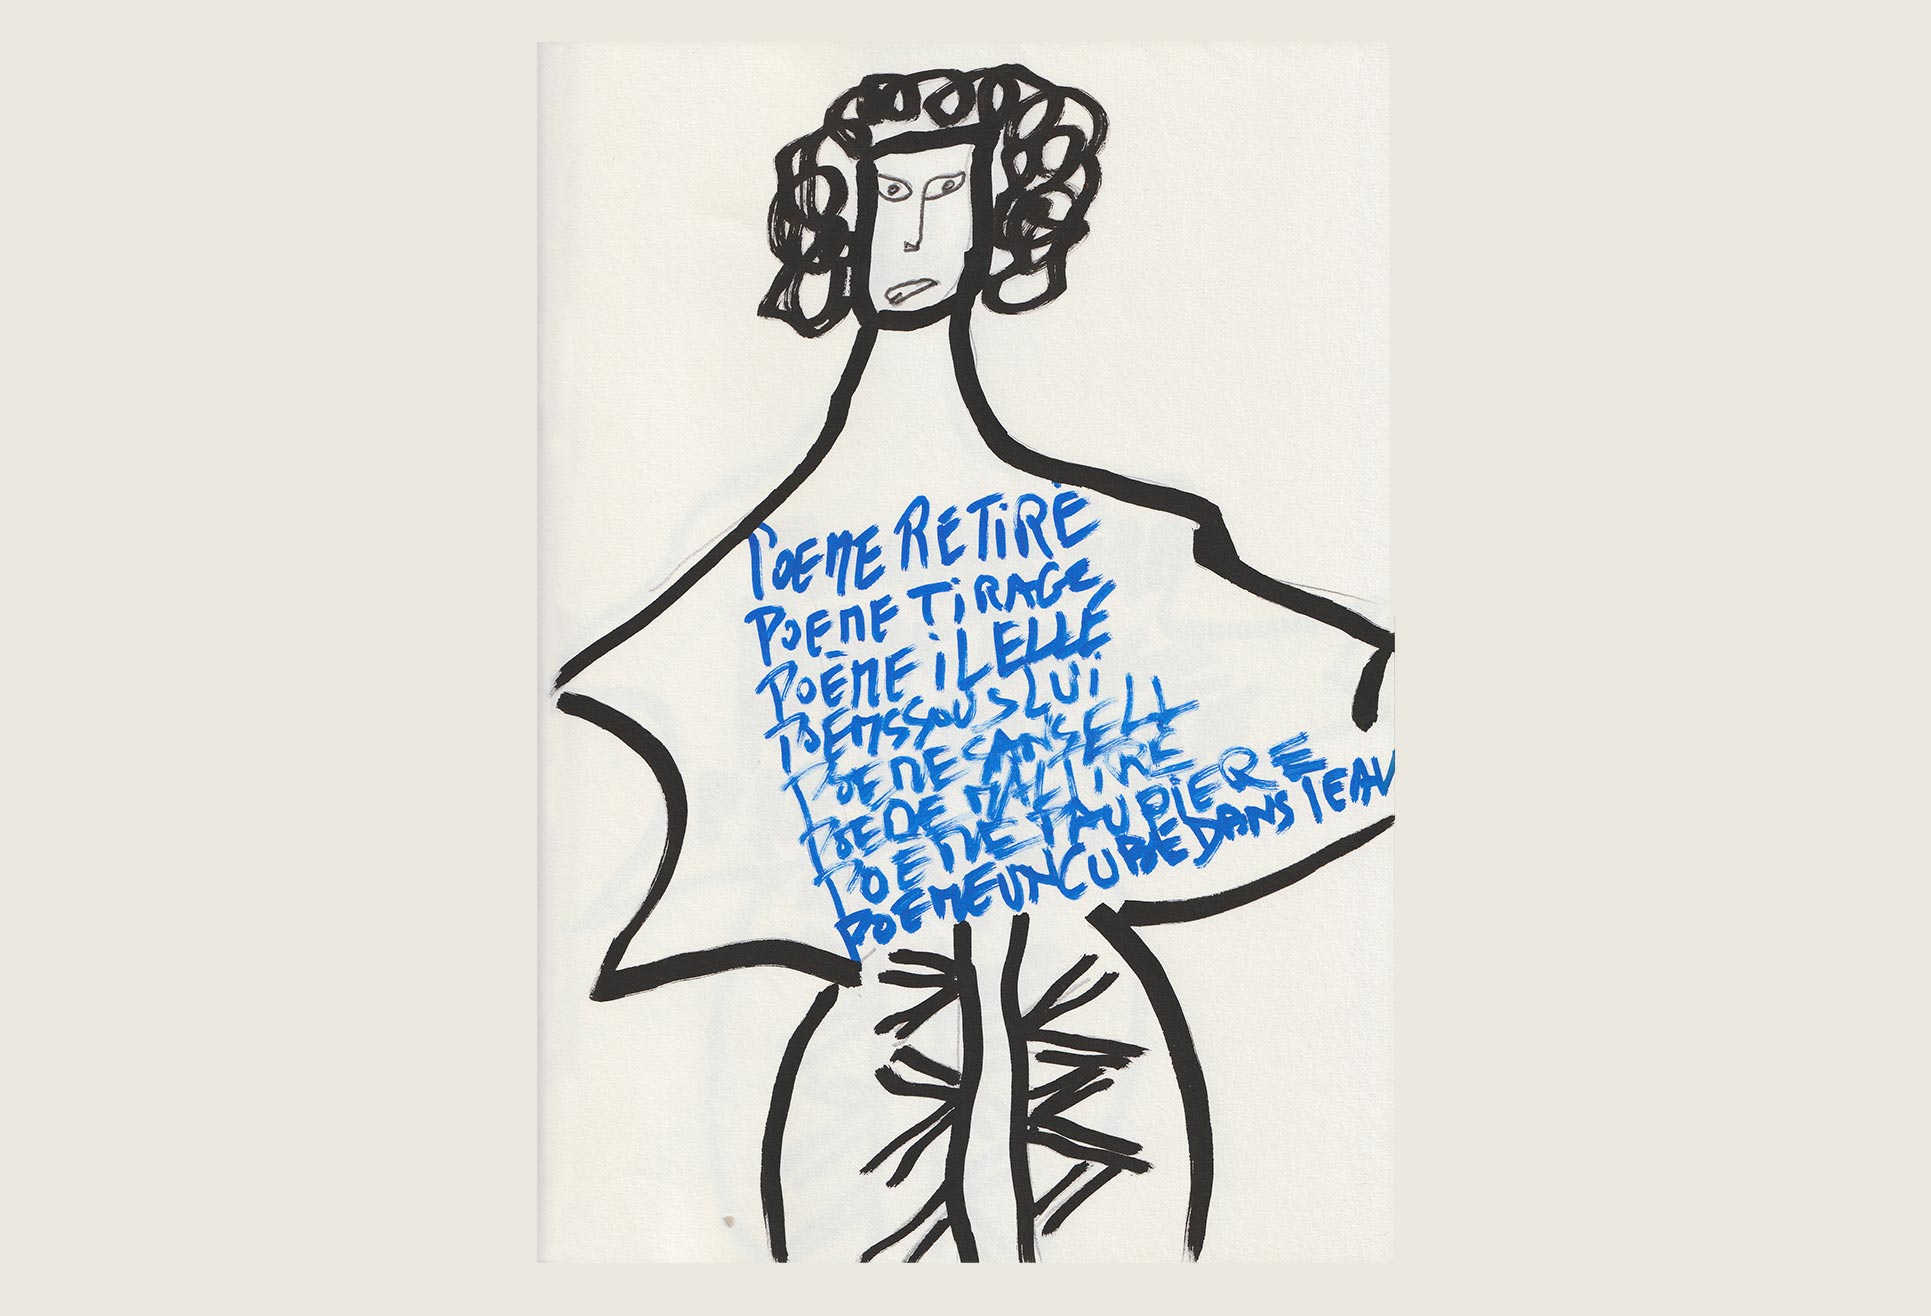 POEME RETIRÉ
POEME TIRAGE
POÈME iL ELLE
POEMSSOUS LUi
POEME SANS ELL
POEME MAL LIRE
POEME PAUPIERE
POEME UN CUBE DANS lEAU